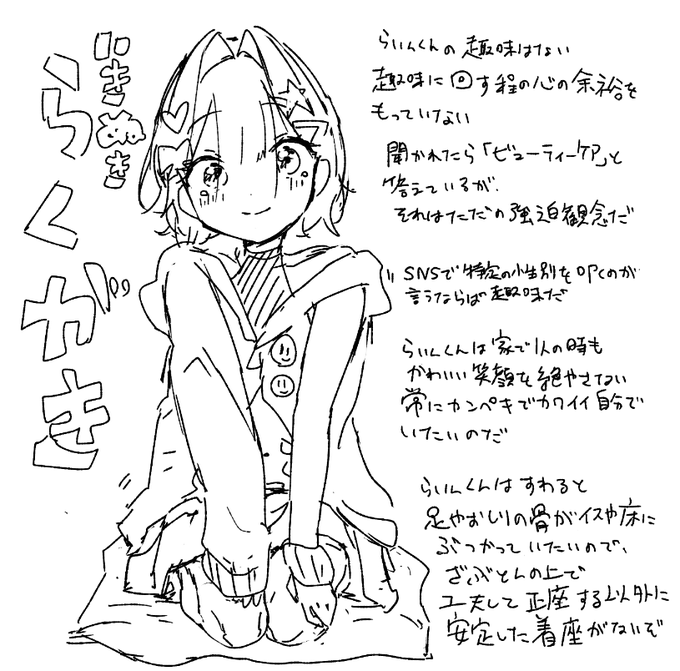 いきぬき
らくがき
らいんくんの趣味はない
趣味に回す程の心の余裕を
もっていない
聞かれたら「ビューティーケア」と
答えているが、
それはただの強迫観念だ
SNSで特定の性別を叩くのが
言うならば趣味だ
らいんくんは家で1人の時も
かわいい笑顔を絶やさない
常にカンペキでカワイイ自分で
いたいのだ
らいんくんはすわると
足やおしりの骨がイスや床に
ぶつかっていたいので、
ざぶとんの上で
工夫して正座する以外に
安定した着座がないぞ